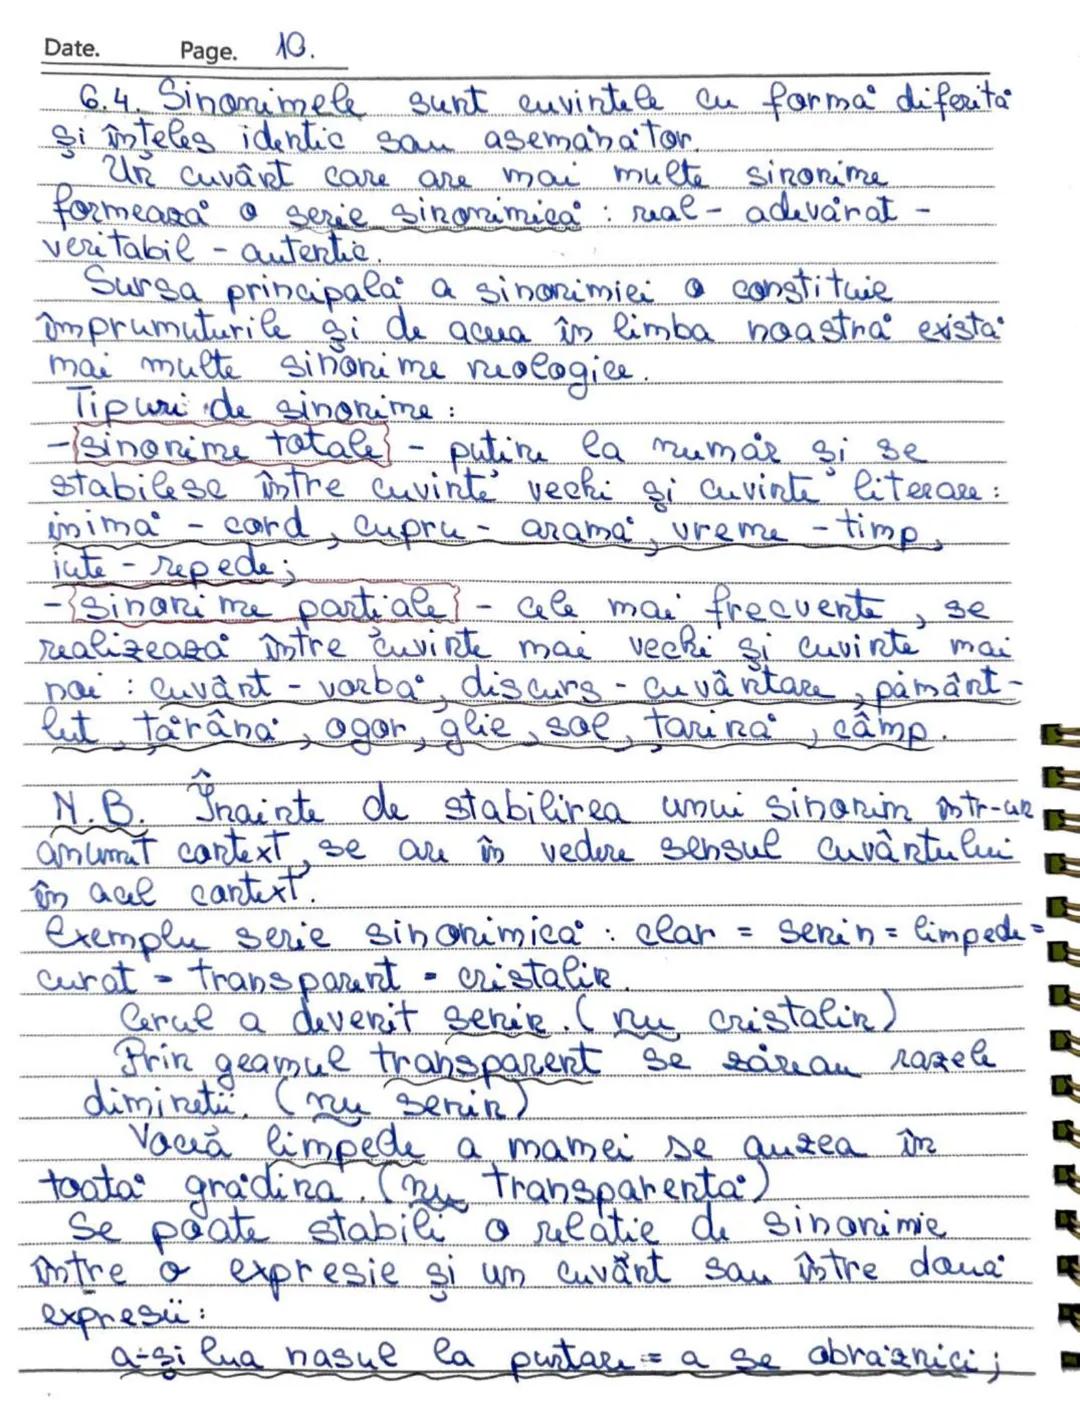 Date. Page. 10.
6.4. Sinonimele sunt cuvintele cu formă diferită
și înțeles identic sau asemănător.
Un cuvânt care are mai multe sinonime
formează o serie sinonimică: real - adevărat -
veritabil - autentic.
Sursa principală a sinonimiei o constituie
împrumuturile și de aceea în limba noastră există
mai multe sinonime neologice.
Tipuri de sinonime:
- sinonime totale - puține la număr și se
stabilesc între cuvinte vechi și cuvinte literare:
inimă - cord, cupru - aramă, vreme - timp,
iute - repede;
- sinonime parțiale - cele mai frecvente, se
realizează între cuvinte mai vechi și cuvinte mai
noi: cuvânt - vorbă, discurs - cuvântare, pământ -
lut, țărână, ogor, glie, sol, țarină, câmp.
N.B. Înainte de stabilirea unui sinonim într-un
anumit context, se are în vedere sensul cuvântului
în acel context.
Exemplu serie sinonimică: clar = senin = limpede =
curat = transparent = cristalin.
Cerul a devenit senin. (nu cristalin)
Prin geamul transparent se zăreau razele
dimineții. (nu senin)
Vocea limpede a mamei se auzea în
toată grădina. (nu transparentă)
Se poate stabili o relație de sinonimie
între o expresie și un cuvânt sau între două
expresii:
a-și lua nasul la purtare = a se obrăznici;